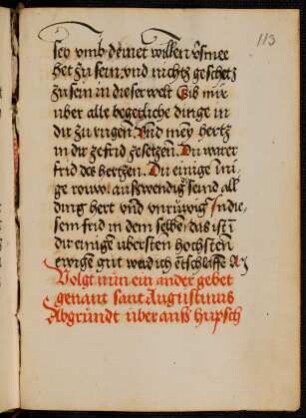 113
sey vmb deinet willen v̈smee
het zu sein vnd nichtz geschetz
zu sein in dieser welt Gib mir
uber alle begerliche dinge in
dir zu rugen Vnd mein hertz
in dir zefrid zesetzen Du warer
frid des hertzen Du einige ini-
ge rouw außwendig seind all
ding hert vnd vnruwig In die-
sem frid in dem selbe das ist i
dir einigen ubersten hochsten
ewigen gut werd ich etschlaffe A
Volgt nun ein ander gebet
genant sant Augustinus
Abgrundt uber auß hupsch